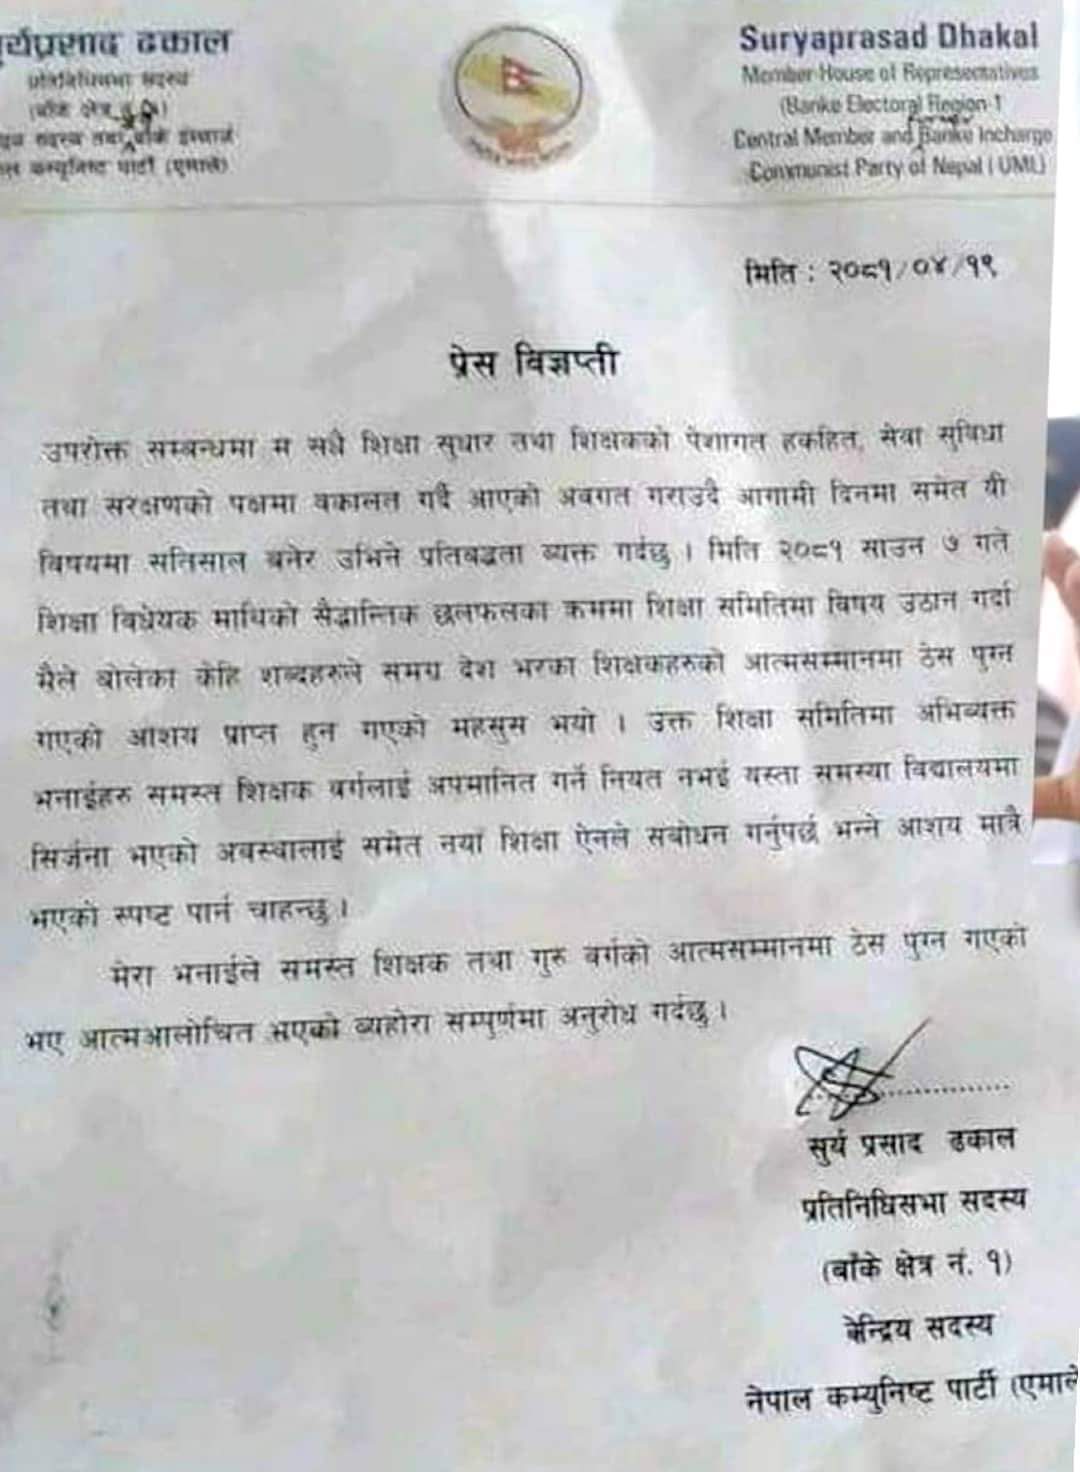 सूर्यप्रसाद ढकाल
प्रतिनिधिसभा सदस्य
(बाँके क्षेत्र नं. १)
सदस्य तथा बाँके इन्चार्ज
कम्युनिष्ट पार्टी (एमाले)
Suryaprasad Dhakal
Member-House of Representatives
(Banke Electoral Region-1
Central Member and Banke Incharge
Communist Party of Nepal (UML)
मिति : २०८१/०४/१९
प्रेस विज्ञप्ती
उपरोक्त सम्बन्धमा म सधै शिक्षा सुधार तथा शिक्षकको पेशागत हकहित, सेवा सुविधा
तथा संरक्षणको पक्षमा वकालत गर्दै आएको अवगत गराउदै आगामी दिनमा समेत यी
विषयमा सतिसाल बनेर उभिने प्रतिबद्धता व्यक्त गर्दछु । मिति २०८१ साउन ७ गते
शिक्षा विधेयक माथिको सैद्धान्तिक छलफलका क्रममा शिक्षा समितिमा विषय उठान गर्दा
मैले बोलेका केहि शब्दहरुले समग्र देश भरका शिक्षकहरुको आत्मसम्मानमा ठेस पुग्न
गएको आशय प्राप्त हुन गएको महसुस भयो । उक्त शिक्षा समितिमा अभिव्यक्त
भनाईहरु समस्त शिक्षक वर्गलाई अपमानित गर्ने नियत नभई यस्ता समस्या विद्यालयमा
सिर्जना भएको अवस्थालाई समेत नयाँ शिक्षा ऐनले संबोधन गर्नुपर्छ भन्ने आशय मात्रै
भएको स्पष्ट पार्न चाहन्छु ।
मेरा भनाईले समस्त शिक्षक तथा गुरु वर्गको आत्मसम्मानमा ठेस पुग्न गएको
भए आत्मआलोचित भएको व्यहोरा सम्पुर्णमा अनुरोध गर्दछु ।
सुर्य प्रसाद ढकाल
प्रतिनिधिसभा सदस्य
(बाँके क्षेत्र नं. १)
केन्द्रिय सदस्य
नेपाल कम्युनिष्ट पार्टी (एमाले